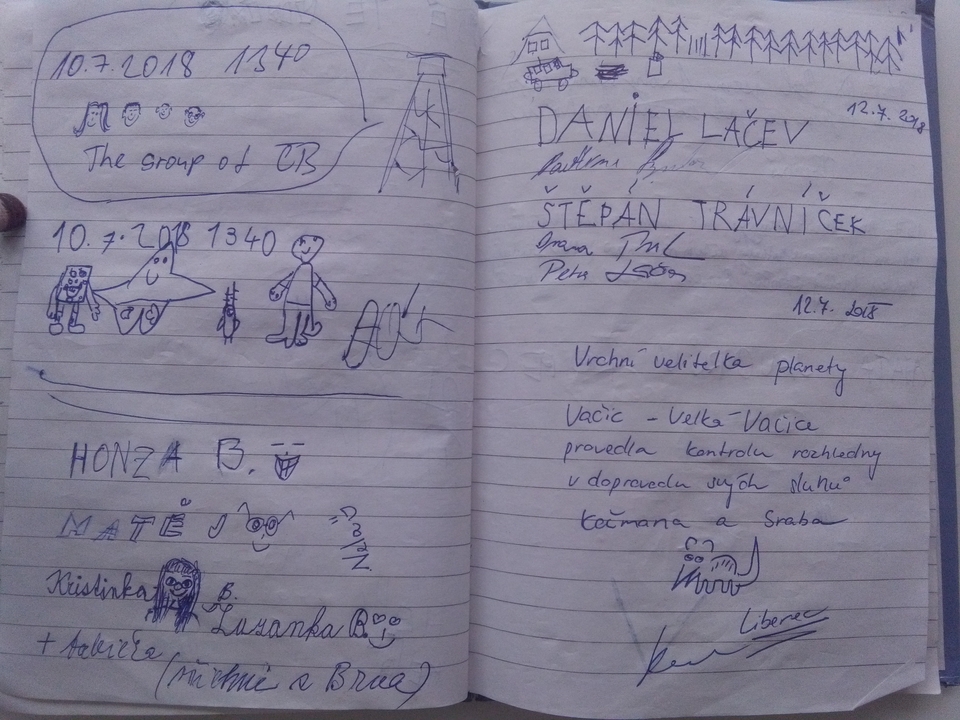 10.7.2018 1340
The group of ČB
10.7.2018 1340
HONZA B.
MATĚJ
Kristinka B.
Zuzanka B
+ babička
Brna)
12.7. 2018
DANIEL LAČEV
ŠTĚPÁN TRÁVNÍČEK
Petr
12.7. 2018
Vrchní velitelka planety
Vačic - Velká Vačice
provedla kontrolu rozhledny
v doprovodu svých sluhů
Kočmana a Sraba
Liberec